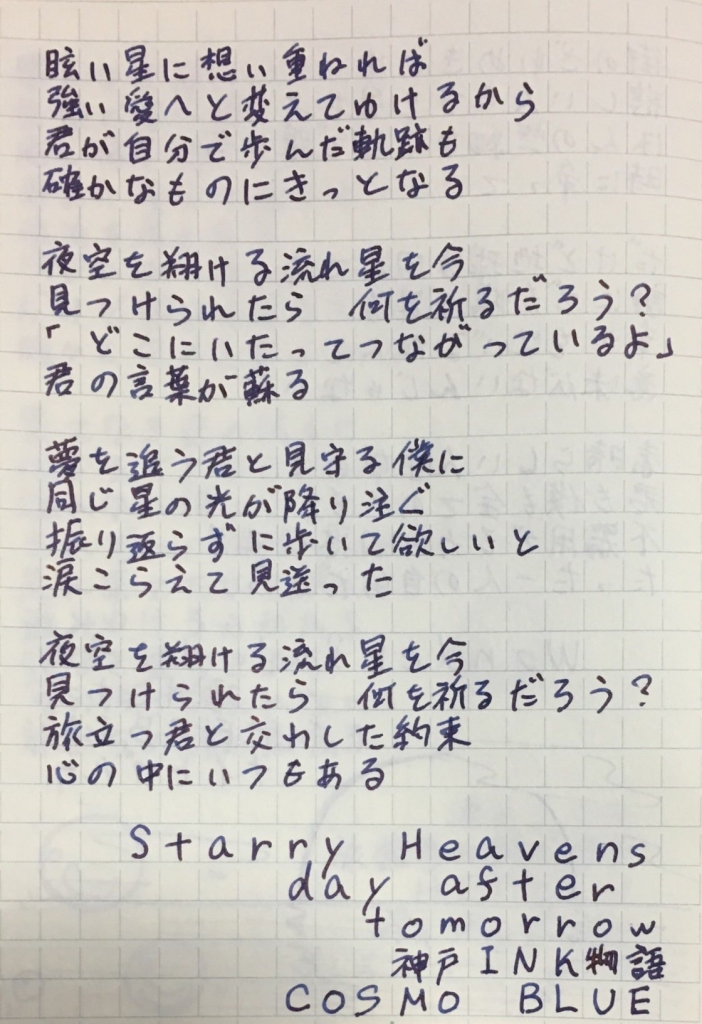 眩い星に想い重ねれば
強い愛へと変えてゆけるから
君が自分で歩んだ軌跡も
確かなものにきっとなる
夜空を翔ける流れ星を今
見つけられたら 何を祈るだろう?
「どこにいたってつながっているよ」
君の言葉が蘇る
夢を追う君と見守る僕に
同じ星の光が降り注ぐ
振り返らずに歩いて欲しいと
涙こらえて見送った
夜空を翔ける流れ星を今
見つけられたら 何を祈るだろう?
旅立つ君と交わした約束
心の中にいつもある
Starry Heavens
day after
tomorrow
神戸INK物語
COSMO BLUE